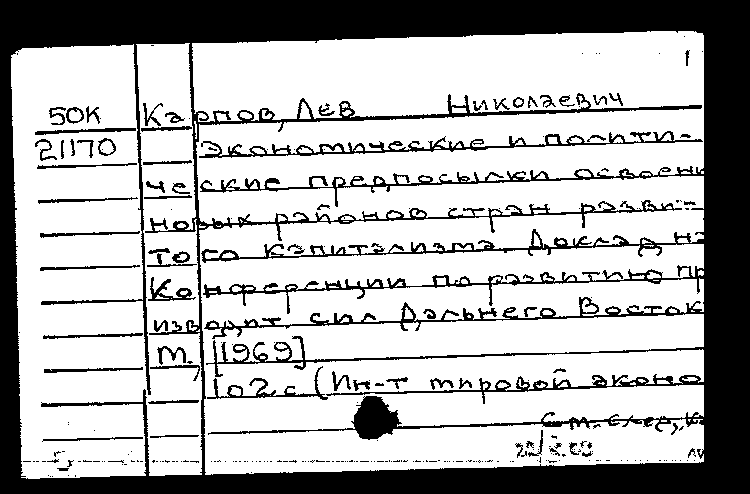 1
50К Карпов, Лев Николаевич
21170 Экономические и полити-
ческие предпосылки освоени
новых районов стран разви-
того капитализма. Доклад на
Конференции по развитию пр
изводит. сил Дальнего Восток
М., [1969]
102 с (Ин-т мировой эконо
См. след. к